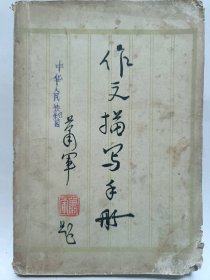 作文描写手册
萧军
题
中华人民